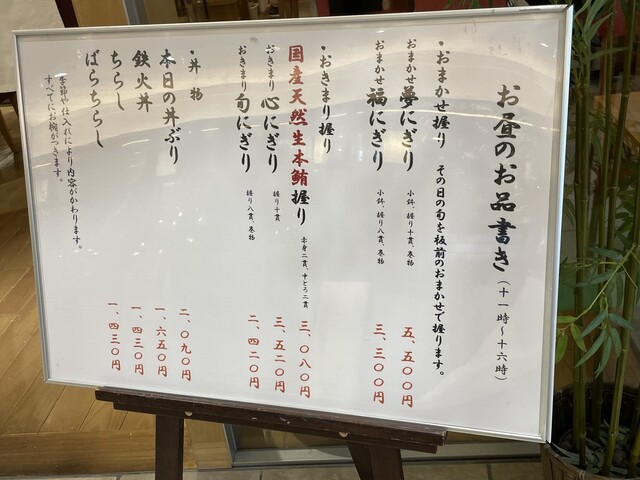 お昼のお品書き（十一時～十六時）
・おまかせ握り その日の旬を板前のおまかせで握ります。
おまかせ 夢にぎり 小鉢、握り十貫、巻物 五、五〇〇円
おまかせ 福にぎり 小鉢、握り八貫、巻物 三、三〇〇円
・おきまり握り
国産天然生本鮪握り 赤身二貫、中とろ二貫 三、〇八〇円
おきまり 心にぎり 握り十貫、巻物 三、五二〇円
おきまり 旬にぎり 握り八貫、巻物 二、四二〇円
・丼物
本日の丼ぶり 二、〇九〇円
鉄火丼 一、六五〇円
ちらし 一、四三〇円
ばらちらし 一、四三〇円
季節や仕入れにより内容がかわります。
すべてにお椀がつきます。